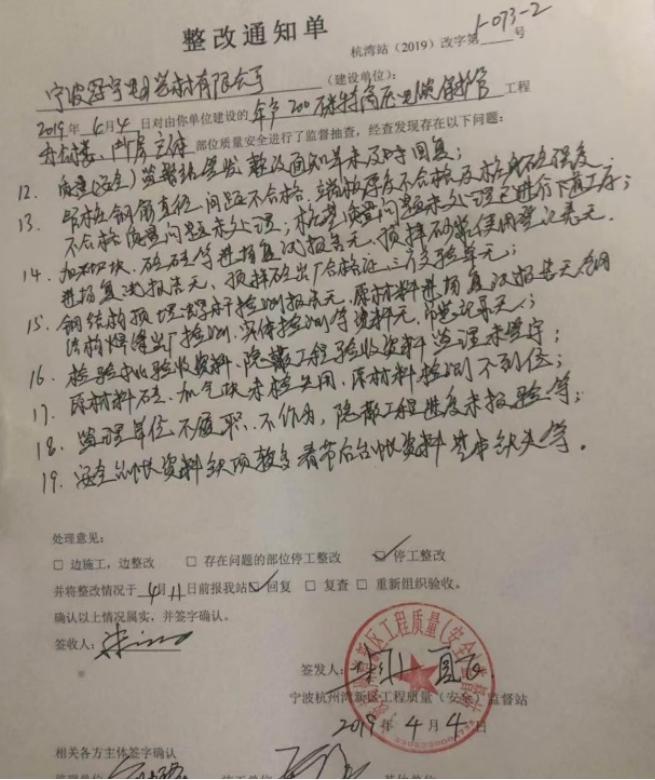 整改通知单
杭湾站（2019）改字第1-073-2号
宁波 有限公司（建设单位）:
2019年4月4日对由你单位建设的年产200 特高压 保护管工程
办公楼、门房主体部位质量安全进行了监督抽查，经查发现存在以下问题：
12. 质量(安全)监督站签发整改通知单未及时回复；
13. 钢筋直径问题不合格、 板厚度不合格及 砼强度
不合格质量问题未处理； 质量问题未处理已进行下道工序；
14. 加气块、砼砖等进场复试报告无、预拌砂浆使用登记表无.
进场复试报告无、预拌砼出厂合格证、 验单无；
15. 钢结构预埋 杆检测报告无、原材料进场复试报告无、钢
结构焊缝出厂检测、实体检测等资料无、 登记表无；
16. 检验批验收资料、隐蔽工程验收资料监理未签字；
17. 原材料砖、加气块未检先用、原材料检测不到位；
18. 监理单位不履职、不作为，隐蔽工程进度未报验等；
19. 安全台帐资料缺项较多春节后台帐资料基本缺失等.
处理意见：
□ 边施工，边整改 □ 存在问题的部位停工整改 ☑ 停工整改
并将整改情况于4月11日前报我站☑ 回复 □ 复查 □ 重新组织验收。
确认以上情况属实，并签字确认。
签收人：
签发人：
宁波杭州湾新区工程质量（安全）监督站
2019年4月4日
相关各方主体签字确认